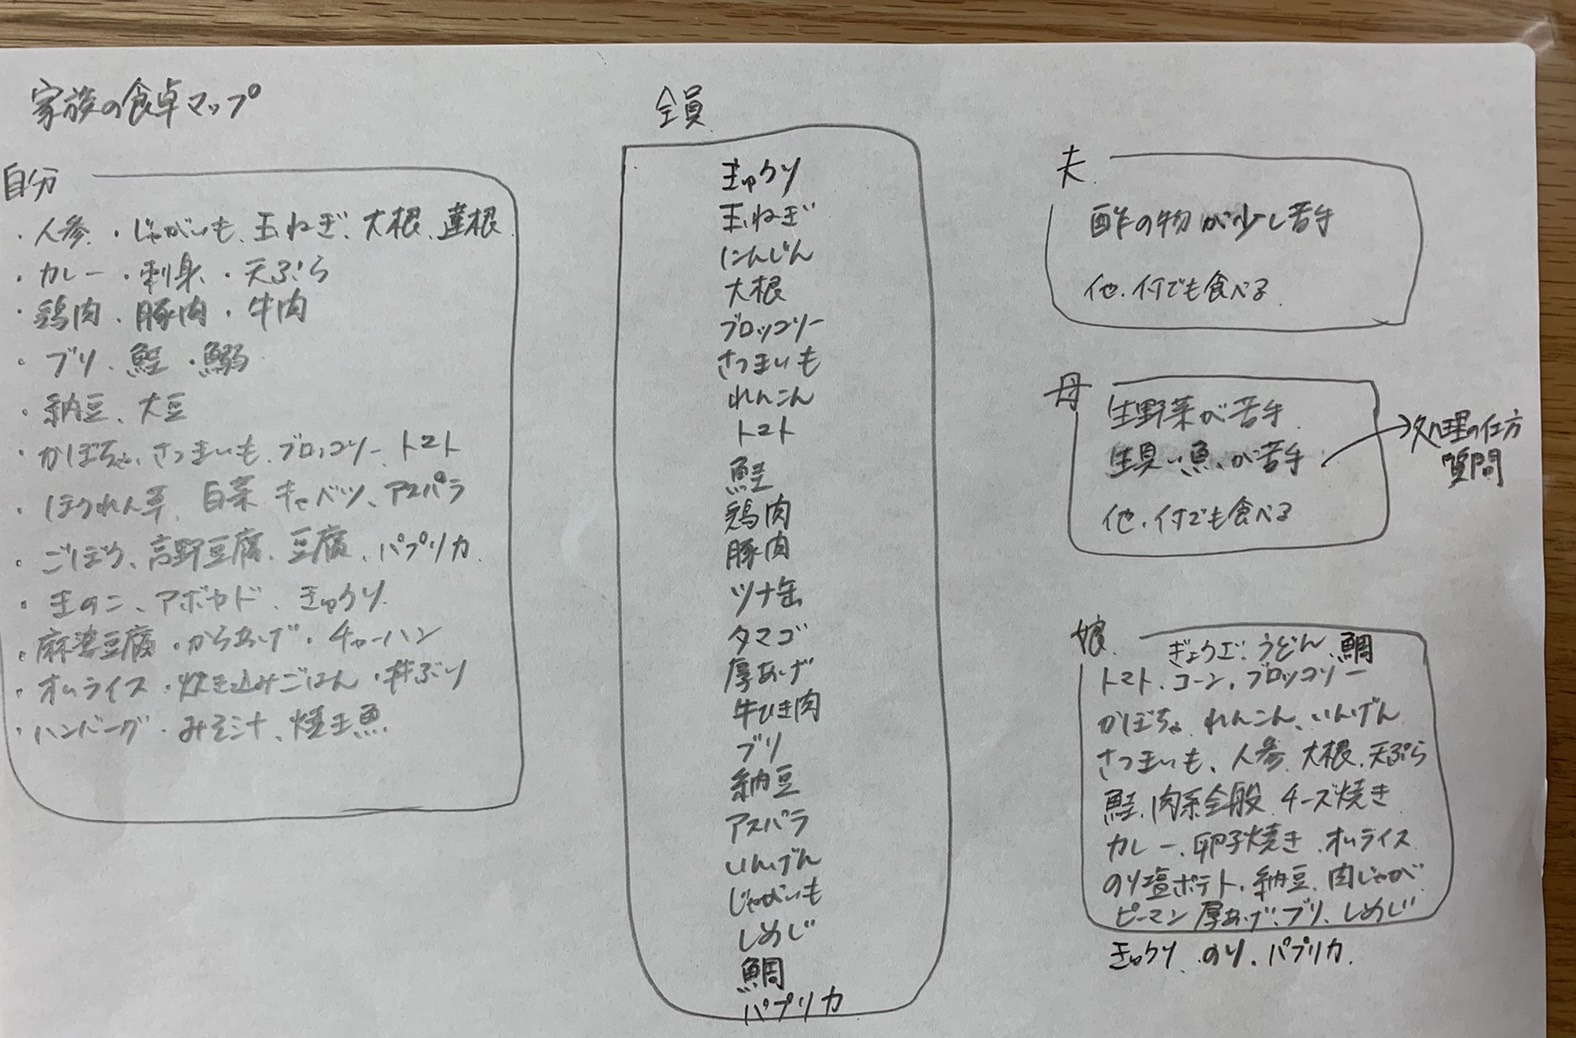 家族の食卓マップ
自分
・人参・じゃがいも、玉ねぎ、大根、蓮根
・カレー・刺身・天ぷら
・鶏肉、豚肉・牛肉
・ブリ、鮭・鰯
・納豆、大豆
・かぼちゃ、さつまいも、ブロッコリー、トマト
・ほうれん草、白菜 キャベツ、アスパラ
・ごぼう、高野豆腐、豆腐、パプリカ
・きのこ、アボカド、きゅうり
・麻婆豆腐・からあげ・チャーハン
・オムライス・炊き込みごはん・丼ぶり
・ハンバーグ・みそ汁、焼き魚
全員
きゅうり
玉ねぎ
にんじん
大根
ブロッコリー
さつまいも
れんこん
トマト
鮭
鶏肉
豚肉
ツナ缶
タマゴ
厚あげ
牛ひき肉
ブリ
納豆
アスパラ
いんげん
じゃがいも
しめじ
鯛
パプリカ
夫
酢の物が少し苦手
他、何でも食べる
母
生野菜が苦手
生臭い魚が苦手
他、何でも食べる
処理の仕方
質問
娘
ぎょうざ、うどん、鯛
トマト、コーン、ブロッコリー
かぼちゃ、れんこん、いんげん
さつまいも、人参、大根、天ぷら
鮭、肉系全般、チーズ焼き
カレー、卵子焼き、オムライス
のり塩ポテト、納豆、肉じゃが
ピーマン 厚あげ、ブリ、しめじ
きゅうり、のり、パプリカ